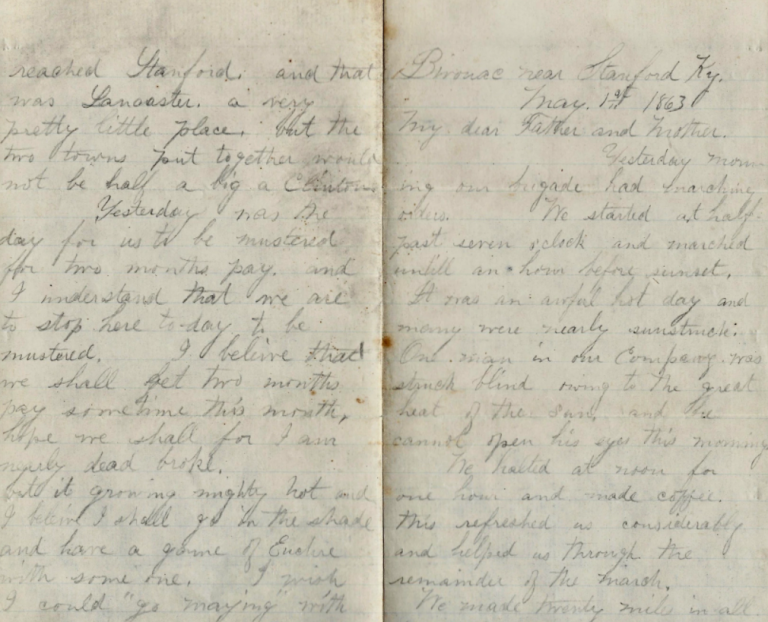 Bivouac near Stanford Ky.
May. 1st 1863
My dear Father and Mother.
Yesterday morn
ing our brigade had marching
orders. We started at half
past seven oclock and marched
untill an hour before sunset.
It was an awful hot day and
many were nearly sunstruck.
One man in our Company was
struck blind owing to the great
heat of the sun, and he
cannot open his eyes this morning
We halted at noon for
one hour and made coffee.
this refreshed us considerably
and helped us through the
remainder of the march.
We made twenty miles in all.
reached Stanford. and that
was Lancaster. a very
pretty little place. but the
two towns put together would
not be half a big a Clinton.
Yesterday was the
day for us to be mustered
for two months pay. and
I understand that we are
to stop here to-day to be
mustered. I beleive that
we shall get two months
pay sometime this month,
hope we shall for I am
nearly dead broke.
but it growing mighty hot and
I beleive I shall go in the shade
and have a game of Euchre
with some one. I wish
I could "go maying" with